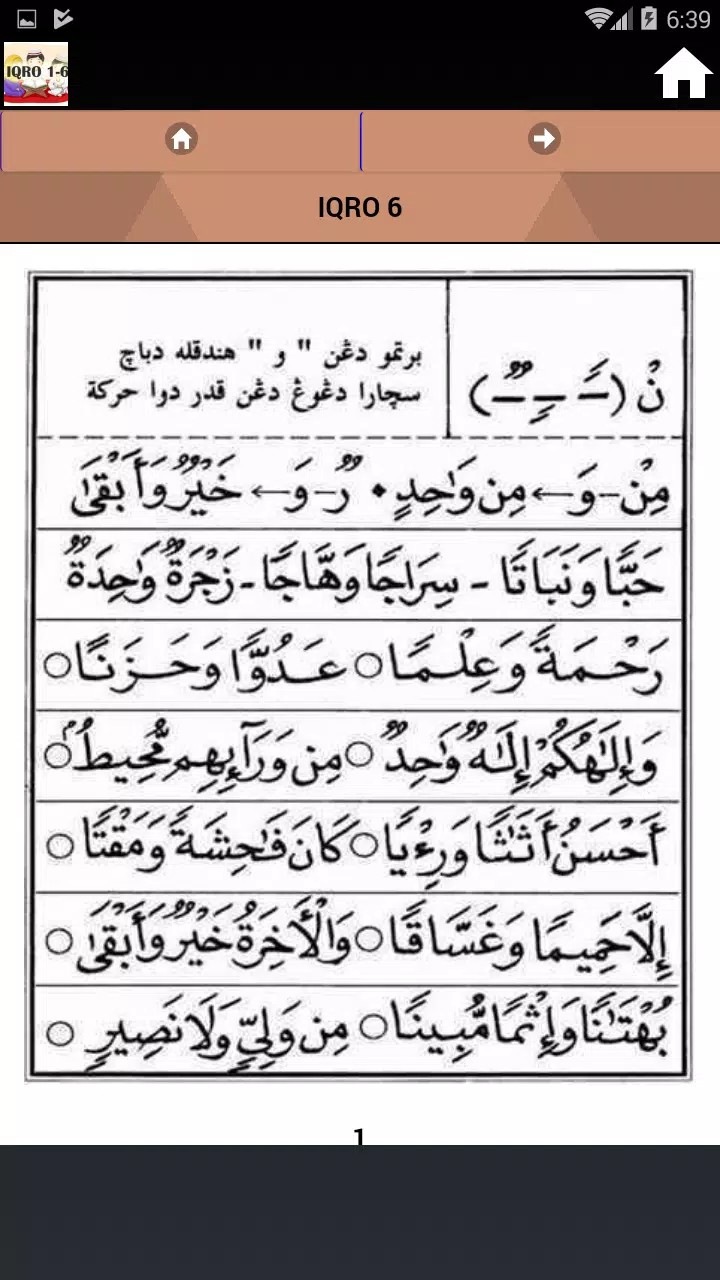 6:39
IQRO 1-6
IQRO 6
نْ (ـَـً ـِـٍ ـُـٌ)
برتمو دڠن " و " هندقله دباچ
سچارا دڠوڠ دڠن قدر دوا حركة
مِنْ - وَ ← مِن وَٰحِدٍ • رٌ - وَ ← خَيْرٌ وَأَبْقَىٰ
حَبًّا وَنَبَاتًا - سِرَاجًا وَهَّاجًا - زَجْرَةٌ وَٰحِدَةٌ
رَحْمَةً وَعِلْمًا ○ عَدُوًّا وَحَزَنًا ○
وَإِلَٰهُكُمْ إِلَٰهٌ وَٰحِدٌ ○ مِن وَرَآئِهِم مُّحِيطٌ ○
أَحْسَنُ أَثَٰثًا وَرِءْيًا ○ كَانَ فَٰحِشَةً وَمَقْتًا ○
إِلَّا حَمِيمًا وَغَسَّاقًا ○ وَالْأَخِرَةُ خَيْرٌ وَأَبْقَىٰ ○
بُهْتَٰنًا وَإِثْمًا مُّبِينًا ○ مِن وَلِيٍّ وَلَا نَصِيرٍ ○
1